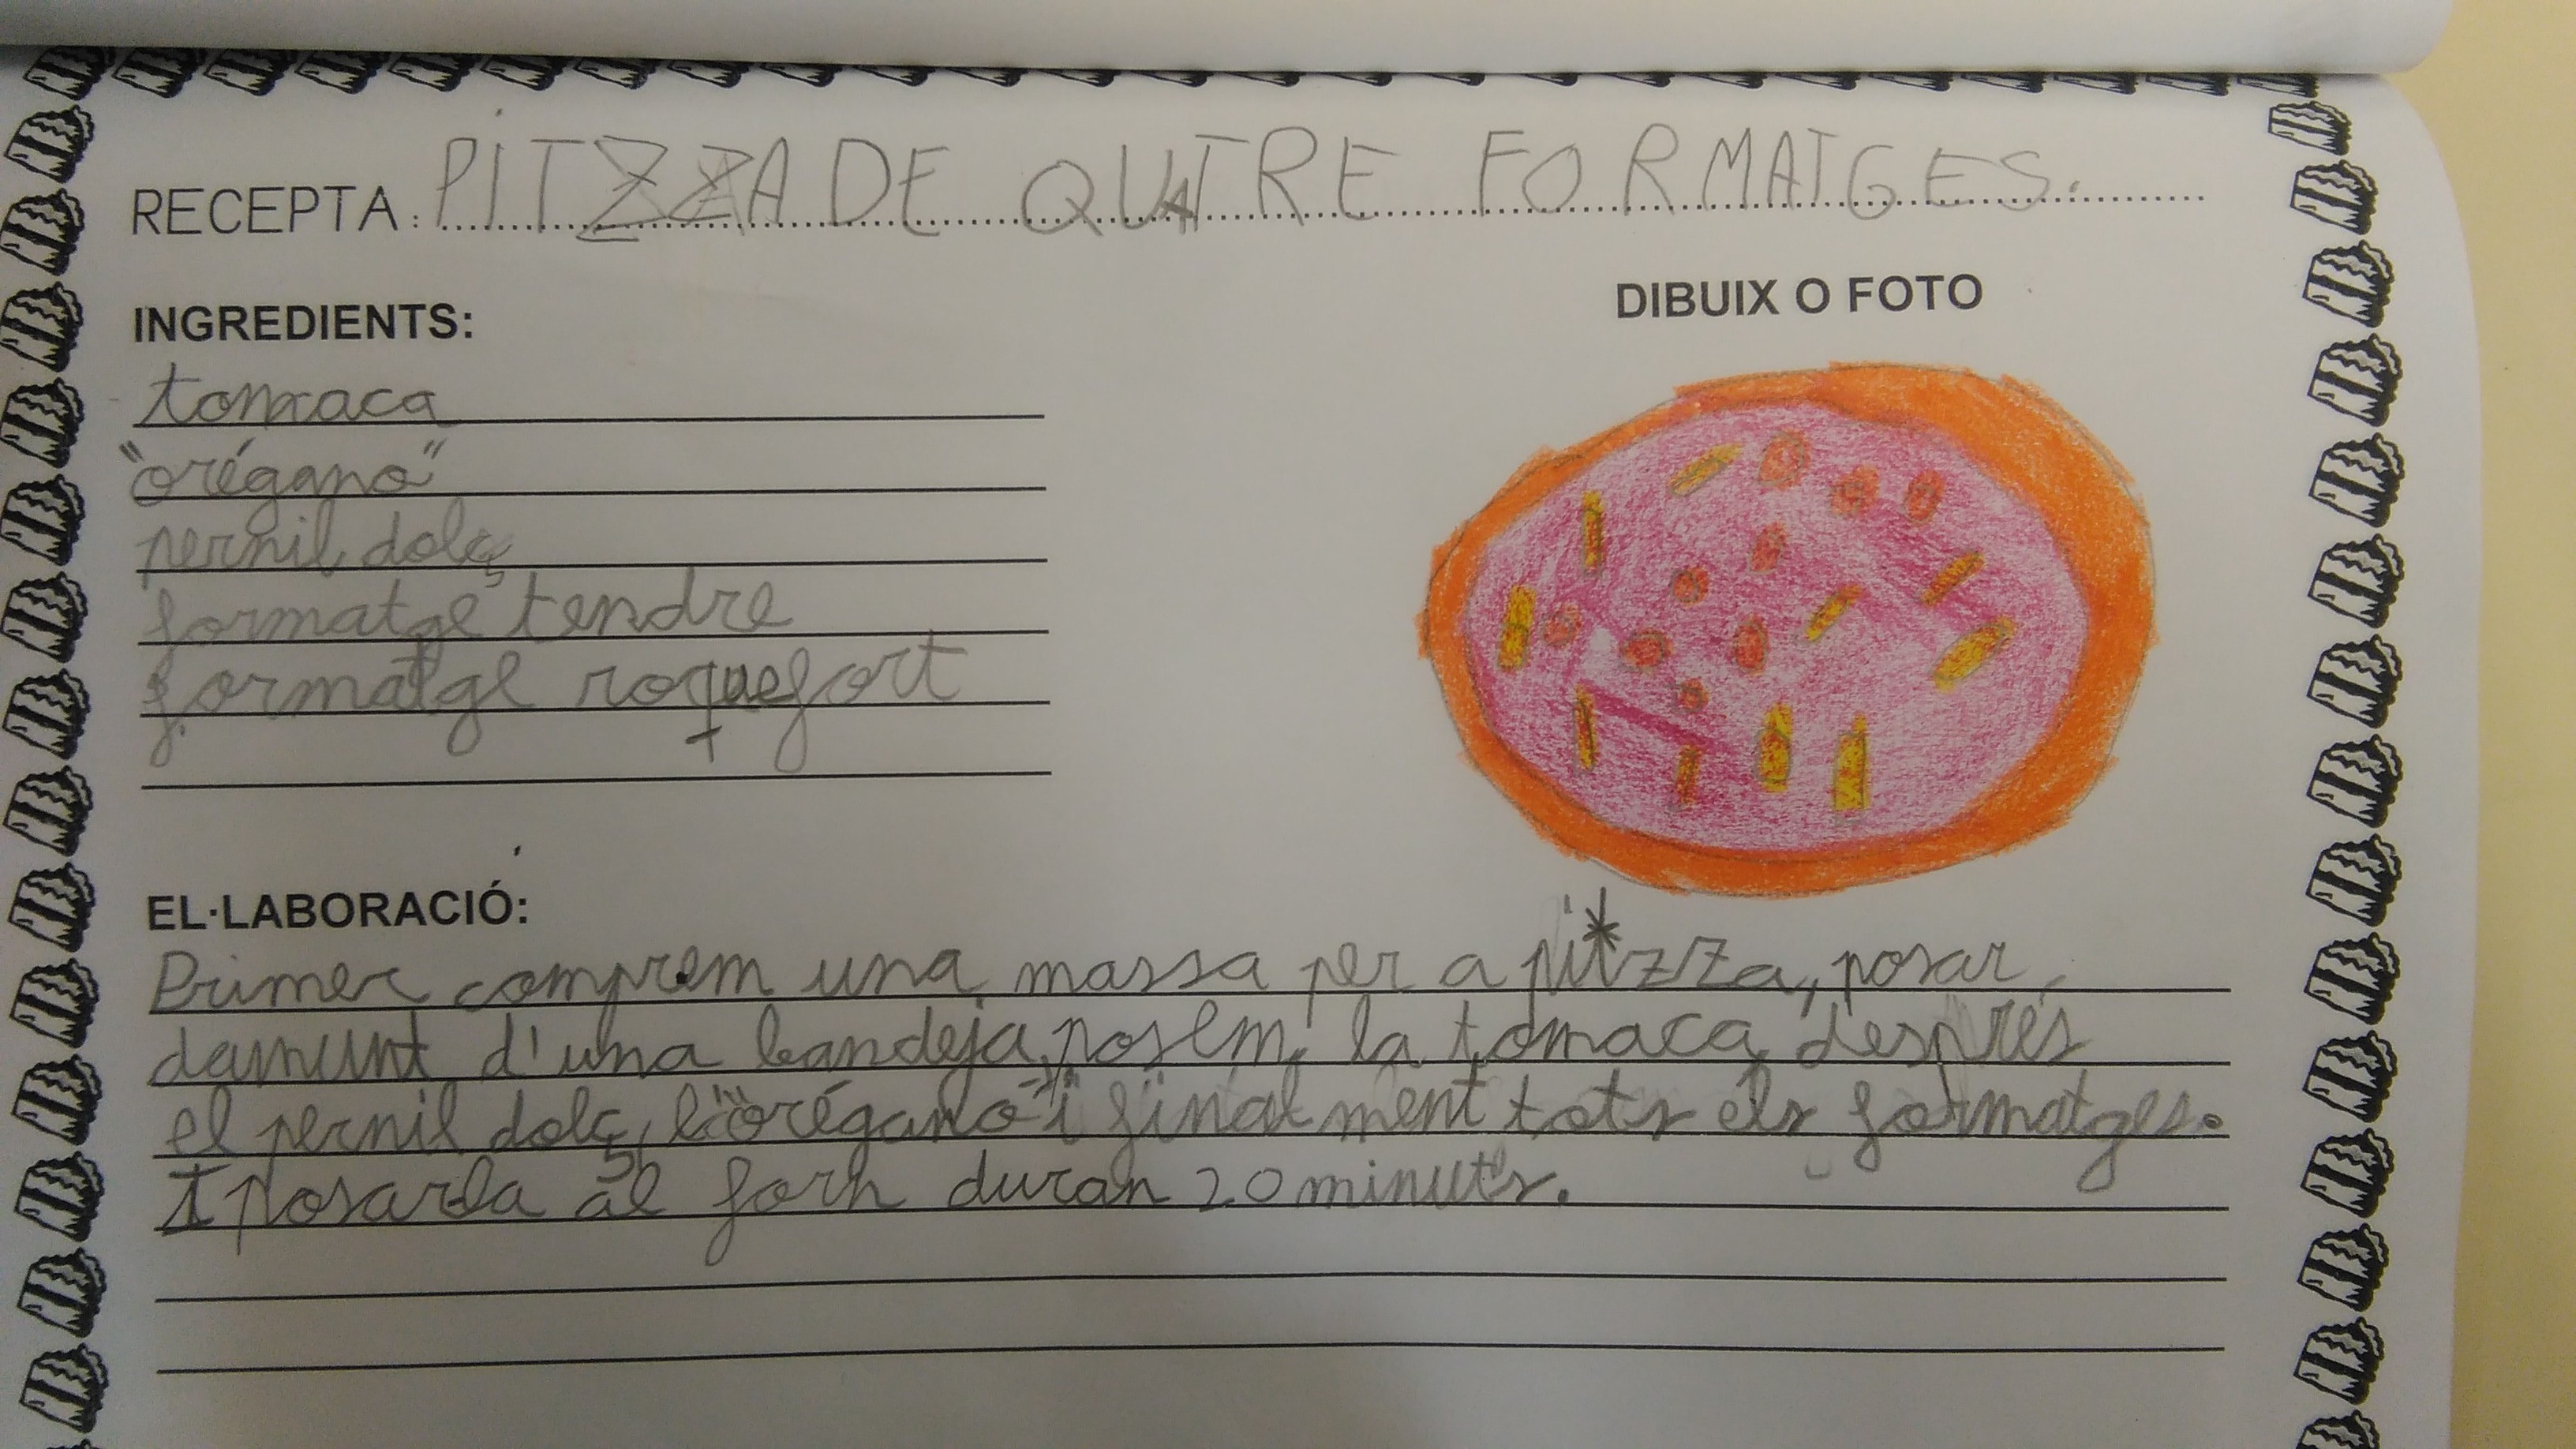 RECEPTA: PITZZA DE QUATRE FORMATGES.
INGREDIENTS:
DIBUIX O FOTO
tomaca
"orégano"
pernil dolç
formatge tendre
formatge roquefort
EL·LABORACIÓ:
Primer comprem una massa per a pitzza, posar
damunt d'una bandeja, posem la tomaca, després
el pernil dolç, l'"orégano" i finalment tots els formatges.
I posarla al forn duran 20 minuts.